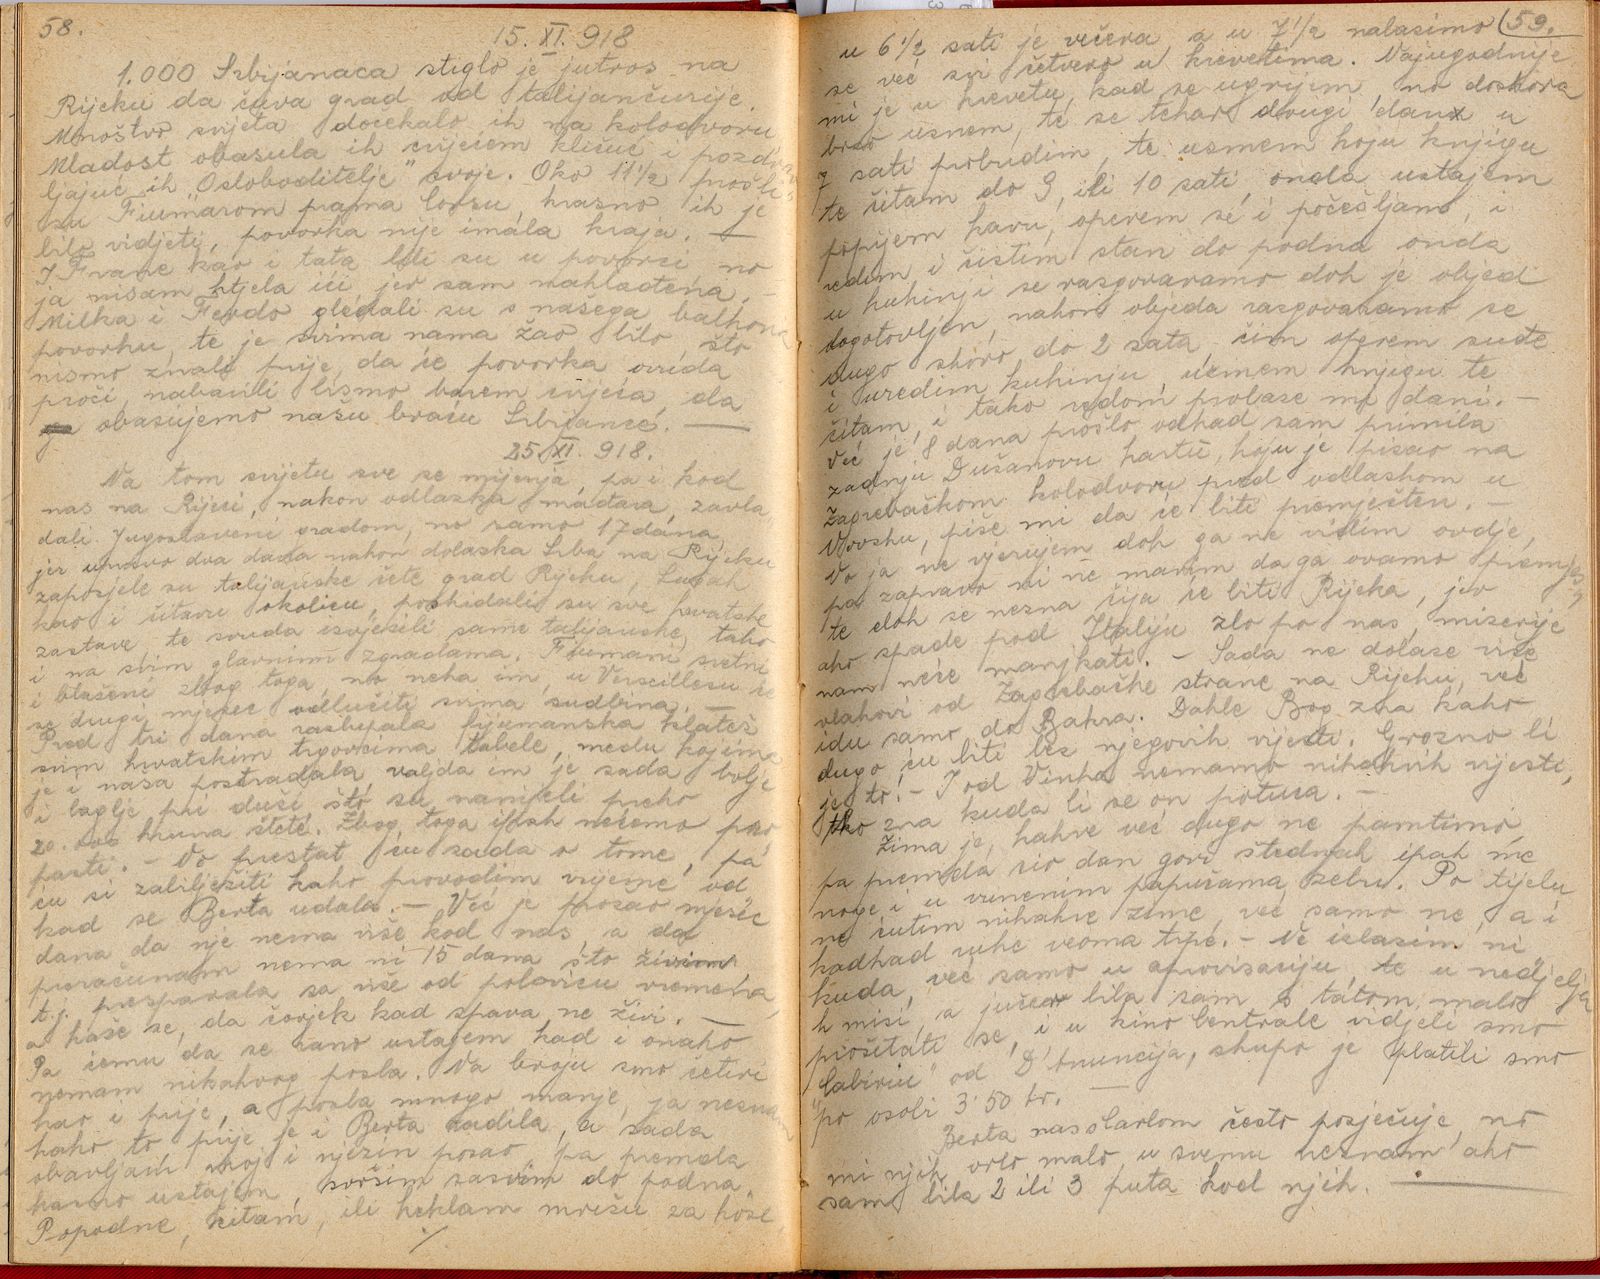 58.
15. XI. 918
1.000 Srbijanaca stiglo je jutros na
Rijeku da čuva grad od talijančurije.
Mnoštvo svijeta dočekalo ih na kolodvoru
Mladost obasula ih cvijećem kličuć i pozdra
ljajuć ih „Osloboditelje" svoje. Oko 11½ prošli
su Fiumarom prama Corsu, krasno ih je
bilo vidjeti, povorka nije imala kraja. —
I Frane kao i tata bili su u povorci no
ja nisam htjela ići jer sam nahlađena. –
Milka i Ferdo gledali su s našega balkona
povorku, te je svima nama žao bilo što
nismo znali prije, da će povorka ovuda
proći, nabavili bismo barem cvijeća, da
obasujemo našu braću Srbijance. —
25. XI. 918.
Na tom svijetu sve se mijenja, pa i kod
nas na Rijeci, nakon odlazka mađara, zavla
dali Jugoslaveni gradom, no samo 17 dana,
jer upravo dva dana nakon dolaska Srba na Rijeku
zaposjele su talijanske čete grad Rijeku, Sušak
kao i čitavu okolicu, poskidali su sve hrvatske
zastave te svuda izvjesili same talijanske, tako
i na svim glavnim zgradama. Fiumani sretni
i blaženi zbog toga, no neka im, u Versaillesu će
se drugi mjesec odlučiti svima sudbina. —
Pred tri dana razlupala fijumanska klatež
svim hrvatskim trgovcima tabele, među kojima
je i naša postradala valjda im je sada bolje
i laglje pri duši, što su nanijeli preko
20.000 kruna štete. Zbog toga ipak nećemo pro
pasti. – No prestat ću sada o tome, pa
ću si zabilježiti kako provodim vrijeme od
kad se Berta udala. — Već je prošao mjesec
dana da nje nema više kod nas, a da
preračunam nema ni 15 dana što živim
t.j. prespavala sa više od polovicu vremena,
a kaže se, da čovjek kad spava ne živi. —
Pa čemu da se rano ustajem kad i onako
nemam nikakvog posla. Na broju smo četiri
kao i prije, a posla mnogo manje, ja neznam
kako to prije je i Berta radila, a sada
obavljam moj i njezin posao, pa premda
kasno ustajem, svršim sasvim do podna
Popodne, čitam, ili heklam mrižu za koše,
59.
u 6½ sati je večera, a u 7½ nalazimo
se već svi četvero u krevetima. Najugodnije
mi je u krevetu, kad se ugrijem, no doskora
brzo usnem, te se tekar drugi dan u
7 sati probudim, te uzmem koju knjigu
te čitam do 9, ili 10 sati, onda ustajem
popijem kavu, operem se, i počešljam, i
redim i čistim stan do podna onda
u kuhinji se razgovaramo dok je objed
zgotovljen, nakon objeda razgovaramo se
dugo skoro do 2 sata, čim operem suđe
i uredim kuhinju, uzmem knjigu te
čitam, i tako redom prolaze mi dani. –
Već je 8 dana prošlo odkad sam primila
zadnju Dušanovu kartu, koju je pisao na
Zagrebačkom kolodvoru pred odlaskom u
piše mi da će biti premješten. –
No ja ne vjerujem dok ga ne vidim ovdje,
pa zapravo ni ne marim da ga ovamo premjes
te dok se nezna čija će biti Rijeka, jer
ako spade pod Italiju zlo po nas, mizerije
nam neće manjkati. – Sada ne dolaze više
vlakovi od Zagrebačke strane na Rijeku, već
idu samo do Bakra. Dakle Bog zna kako
dugo ću biti bez njegovih vijesti. Grozno li
je to! – I od Vinka nemamo nikakvih vijesti,
tko zna kuda li se on potuca. –
Zima je, kakve već dugo ne pamtimo,
pa premda cio dan gori štednjak ipak me
noge i u vunenim papučama zebu. Po tijelu
ne ćutim nikakve zime, već samo ne, a i
kadkad ruke veoma trpe. – Ne izlazim ni
kuda, već samo u aprovizaciju, te u nedjelju
k misi, a jučer bila sam s tatom malo
prošitati se, i u kino Centrale vidjeli smo
„Cabiriu" od D'Anuncija, skupo je platili smo
po osobi 3·50 kr. —
Berta nas s Carlom često posjećuje, no
mi njih vrlo malo, u svemu neznam ako
sam bila 2 ili 3 puta kod njih. —